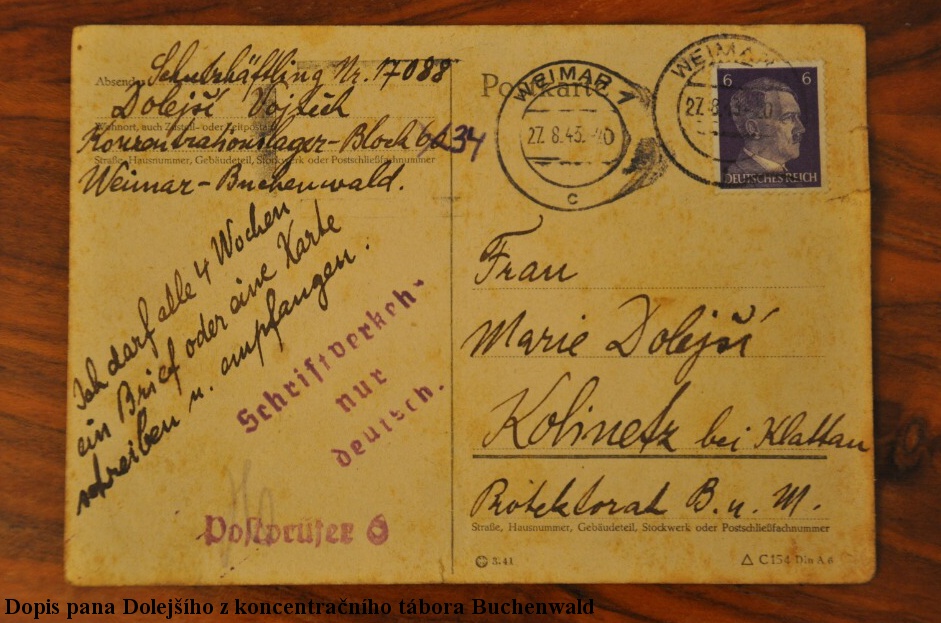 Absender:
Schutzhäftling Nr. 17088
Dolejší Vojtěch
Wohnort, auch Zustell- oder Leitpostamt
Konzentrationslager-Block 34
Straße, Hausnummer, Gebäudeteil, Stockwerk oder Postschließfachnummer
Weimar-Buchenwald.
Ich darf alle 4 Wochen
ein Brief oder eine Karte
schreiben u. empfangen.
Schriftverkeh-
nur
deutsch.
Postprüfer 6
Postkarte
WEIMAR 1
27.8.43.
c
WEIMAR
27.8.43
6 6
DEUTSCHES REICH
Frau
Marie Dolejší
Kolinetz bei Klattau
Protektorat B. u. M.
Straße, Hausnummer, Gebäudeteil, Stockwerk oder Postschließfachnummer
3.41
C 154 Din A 6
Dopis pana Dolejšího z koncentračního tábora Buchenwald